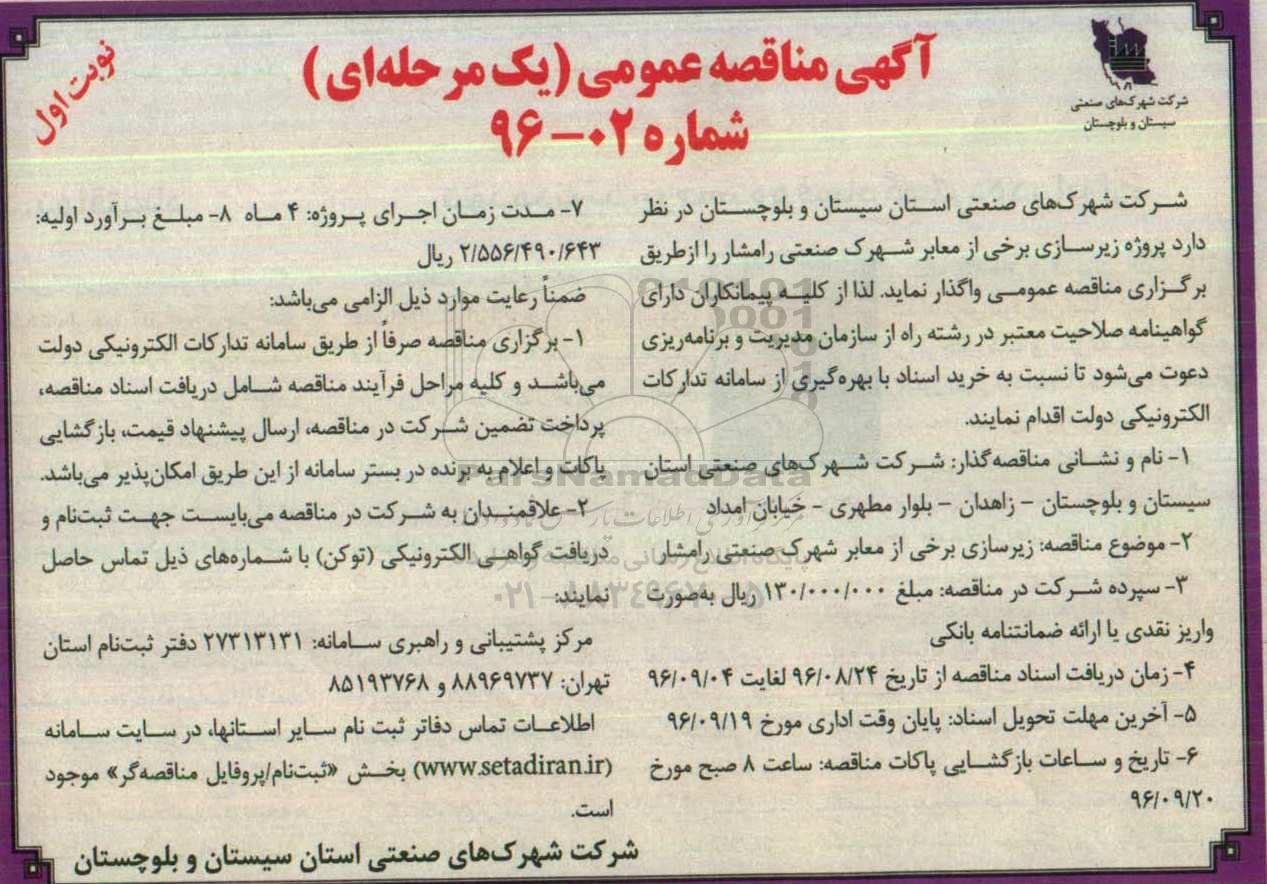 شرکت شهرک‌های صنعتی
سیستان و بلوچستان
آگهی مناقصه عمومی (یک مرحله‌ای)
شماره ۰۲-۹۶
نوبت اول
شرکت شهرک‌های صنعتی استان سیستان و بلوچستان در نظر
دارد پروژه زیرسازی برخی از معابر شهرک صنعتی رامشار را ازطریق
برگزاری مناقصه عمومی واگذار نماید. لذا از کلیه پیمانکاران دارای
گواهینامه صلاحیت معتبر در رشته راه از سازمان مدیریت و برنامه‌ریزی
دعوت می‌شود تا نسبت به خرید اسناد با بهره‌گیری از سامانه تدارکات
الکترونیکی دولت اقدام نمایند.
۱- نام و نشانی مناقصه‌گذار: شرکت شهرک‌های صنعتی استان
سیستان و بلوچستان - زاهدان - بلوار مطهری - خیابان امداد
۲- موضوع مناقصه: زیرسازی برخی از معابر شهرک صنعتی رامشار
۳- سپرده شرکت در مناقصه: مبلغ ۱۳۰/۰۰۰/۰۰۰ ریال به‌صورت
واریز نقدی یا ارائه ضمانتنامه بانکی
۴- زمان دریافت اسناد مناقصه از تاریخ ۹۶/۰۸/۲۴ لغایت ۹۶/۰۹/۰۴
۵- آخرین مهلت تحویل اسناد: پایان وقت اداری مورخ ۹۶/۰۹/۱۹
۶- تاریخ و ساعات بازگشایی پاکات مناقصه: ساعت ۸ صبح مورخ
۹۶/۰۹/۲۰
۷- مدت زمان اجرای پروژه: ۴ ماه ۸- مبلغ برآورد اولیه:
۲/۵۵۶/۴۹۰/۶۴۳ ریال
ضمناً رعایت موارد ذیل الزامی می‌باشد:
۱- برگزاری مناقصه صرفاً از طریق سامانه تدارکات الکترونیکی دولت
می‌باشد و کلیه مراحل فرآیند مناقصه شامل دریافت اسناد مناقصه،
پرداخت تضمین شرکت در مناقصه، ارسال پیشنهاد قیمت، بازگشایی
پاکات و اعلام به برنده در بستر سامانه از این طریق امکان‌پذیر می‌باشد.
۲- علاقمندان به شرکت در مناقصه می‌بایست جهت ثبت‌نام و
دریافت گواهی الکترونیکی (توکن) با شماره‌های ذیل تماس حاصل
نمایند:
مرکز پشتیبانی و راهبری سامانه: ۲۷۳۱۳۱۳۱ دفتر ثبت‌نام استان
تهران: ۸۸۹۶۹۷۳۷ و ۸۵۱۹۳۷۶۸
اطلاعات تماس دفاتر ثبت نام سایر استانها، در سایت سامانه
(www.setadiran.ir) بخش «ثبت‌نام/پروفایل مناقصه‌گر» موجود
است.
شرکت شهرک‌های صنعتی استان سیستان و بلوچستان
ParsNamadData